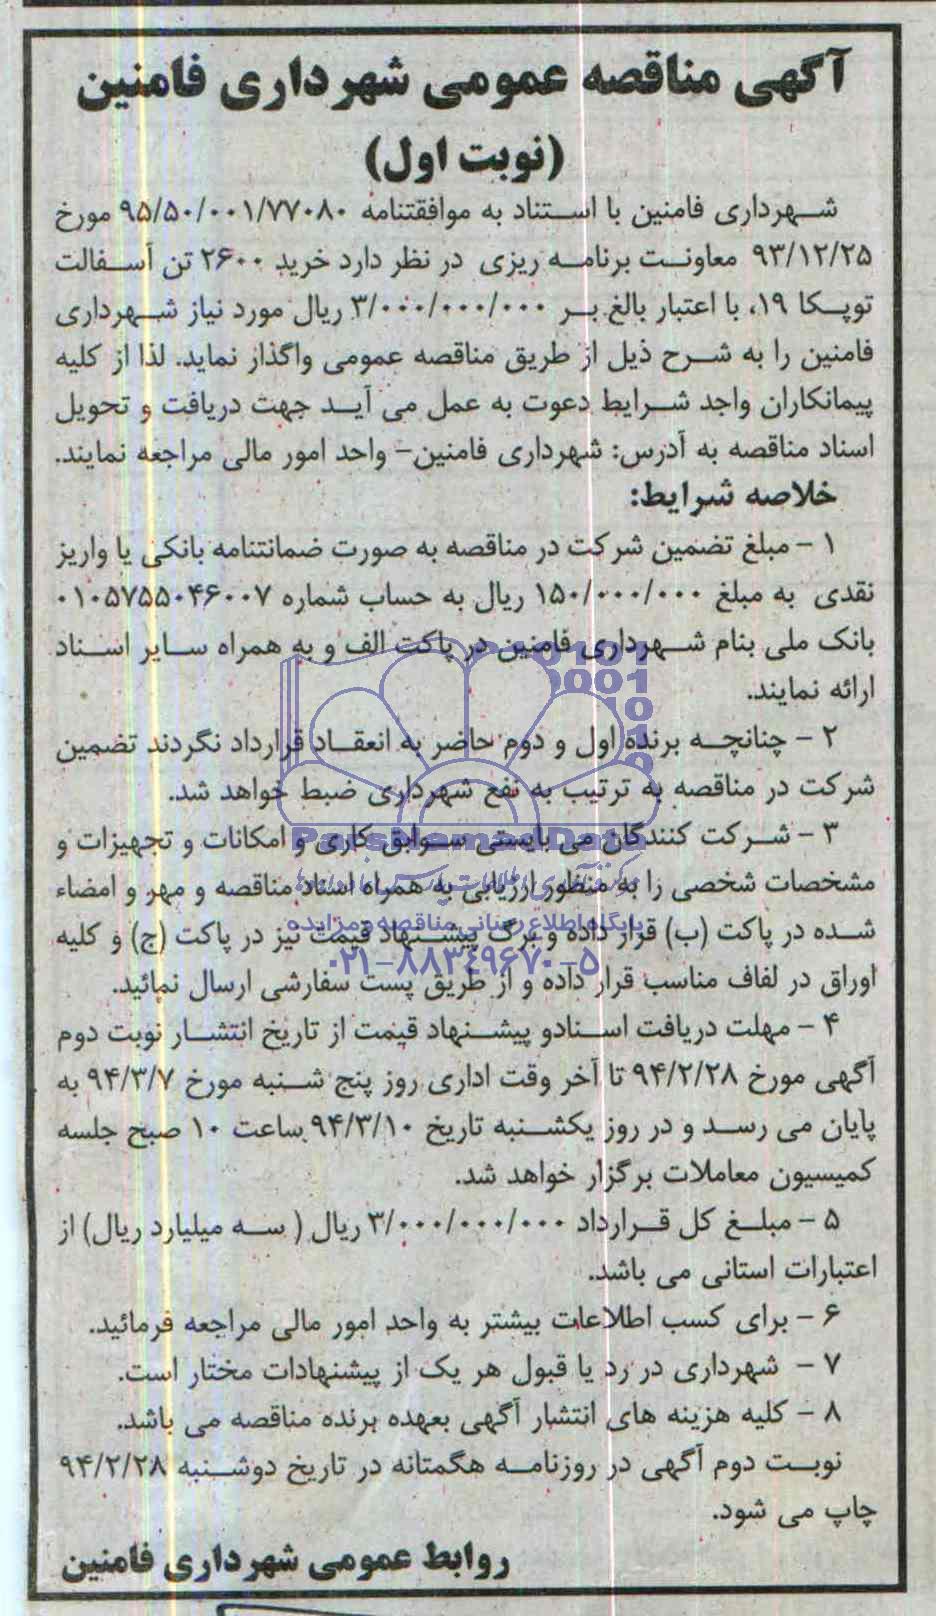 آگهی مناقصه عمومی شهرداری فامنین
(نوبت اول)
شهرداری فامنین با استناد به موافقتنامه ۹۵/۵۰/۰۰۱/۷۷۰۸۰ مورخ
۹۳/۱۲/۲۵ معاونت برنامه ریزی در نظر دارد خرید ۲۶۰۰ تن آسفالت
توپکا ۱۹، با اعتبار بالغ بر ۳/۰۰۰/۰۰۰/۰۰۰ ریال مورد نیاز شهرداری
فامنین را به شرح ذیل از طریق مناقصه عمومی واگذار نماید. لذا از کلیه
پیمانکاران واجد شرایط دعوت به عمل می آید جهت دریافت و تحویل
اسناد مناقصه به آدرس: شهرداری فامنین- واحد امور مالی مراجعه نمایند.
خلاصه شرایط:
۱ – مبلغ تضمین شرکت در مناقصه به صورت ضمانتنامه بانکی یا واریز
نقدی به مبلغ ۱۵۰/۰۰۰/۰۰۰ ریال به حساب شماره ۰۱۰۵۷۵۵۰۴۶۰۰۷
بانک ملی بنام شهرداری فامنین در پاکت الف و به همراه سایر اسناد
ارائه نمایند.
۲ – چنانچه برنده اول و دوم حاضر به انعقاد قرارداد نگردند تضمین
شرکت در مناقصه به ترتیب به نفع شهرداری ضبط خواهد شد.
۳ – شرکت کنندگان می بایستی سوابق کاری و امکانات و تجهیزات و
مشخصات شخصی را به منظور ارزیابی به همراه اسناد مناقصه و مهر و امضاء
شده در پاکت (ب) قرار داده و برگ پیشنهاد قیمت نیز در پاکت (ج) و کلیه
اوراق در لفاف مناسب قرار داده و از طریق پست سفارشی ارسال نمائید.
۴ – مهلت دریافت اسنادو پیشنهاد قیمت از تاریخ انتشار نوبت دوم
آگهی مورخ ۹۴/۲/۲۸ تا آخر وقت اداری روز پنج شنبه مورخ ۹۴/۳/۷ به
پایان می رسد و در روز یکشنبه تاریخ ۹۴/۳/۱۰ ساعت ۱۰ صبح جلسه
کمیسیون معاملات برگزار خواهد شد.
۵ – مبلغ کل قرارداد ۳/۰۰۰/۰۰۰/۰۰۰ ریال ( سه میلیارد ریال) از
اعتبارات استانی می باشد.
۶ – برای کسب اطلاعات بیشتر به واحد امور مالی مراجعه فرمائید.
۷ – شهرداری در رد یا قبول هر یک از پیشنهادات مختار است.
۸ – کلیه هزینه های انتشار آگهی بعهده برنده مناقصه می باشد.
نوبت دوم آگهی در روزنامه هگمتانه در تاریخ دوشنبه ۹۴/۲/۲۸
چاپ می شود.
روابط عمومی شهرداری فامنین
پایگاه اطلاع رسانی مناقصه و مزایده
۰۲۱-۸۸۳۴۹۶۷۰-۵